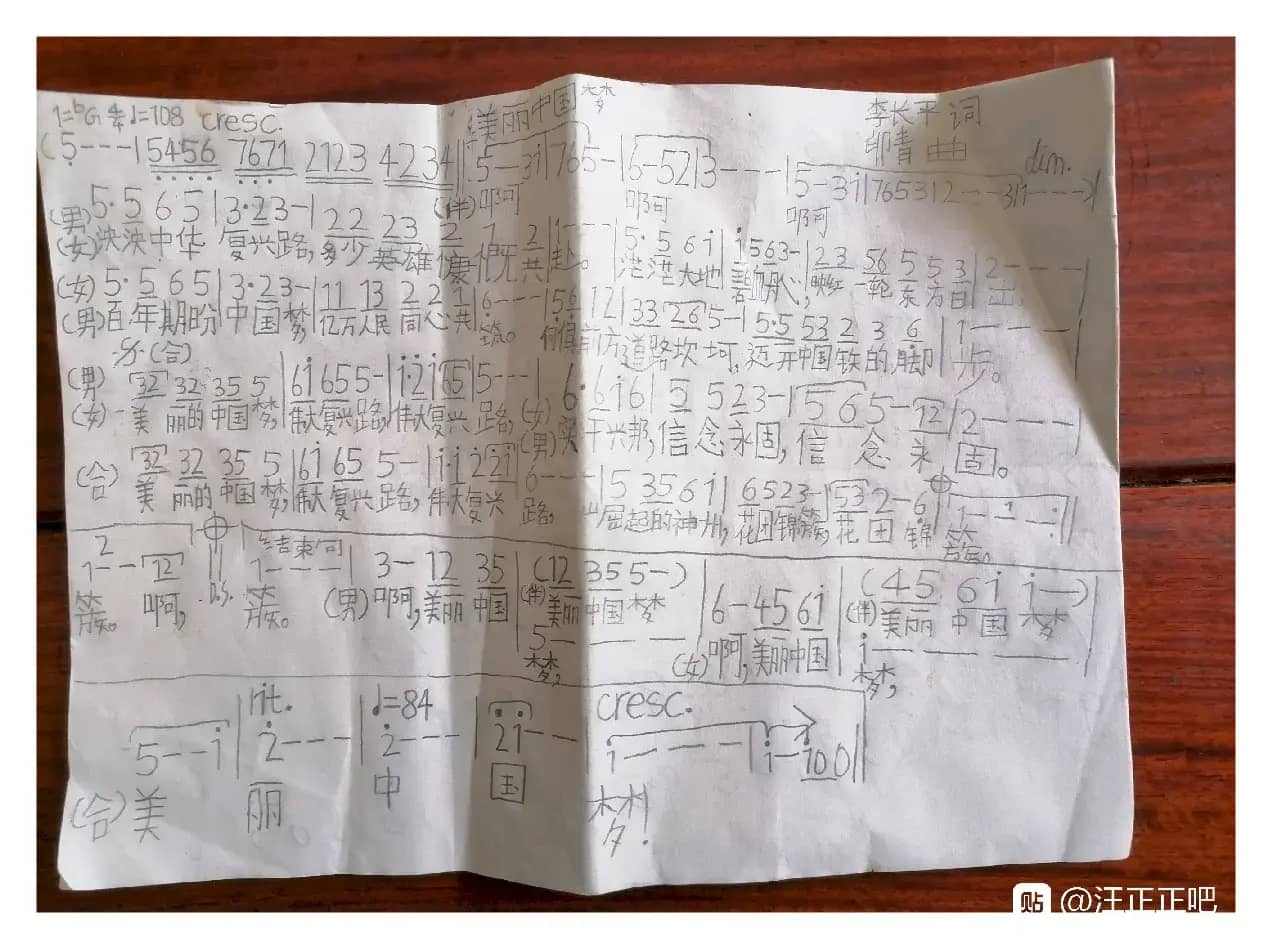 1=♭G 4/4 ♩=108 cresc. 美丽中国梦 李长平 词
印青 曲
dim.
(5---|5456 7671 2123 4234‖5-3i|765-|6-52|3---|5-3i|765312--31---)|
(伴)啊 啊 啊
(男)5·5 6 5|3·23-|22 23 2 1 2|i---|5·5 6i|i563-|23 56 5 5 3|2---|
(女)泱泱中华 复兴路,多少英雄慷慨共赴。茫茫大地碧血丹心,映红一轮东方日出,
(女)5·5 6 5|3·23-|11 13 2 2 1|6---|56 12|33 26 5-|5·5 53 2 3 6|1---|
(男)百年期盼中国梦,亿万人民同心共筑。何惧前方道路坎坷,迈开中国铁的,脚步。
𝄋(合)
(男)32 32 35 5|6i 65 5-|i·2i65|5---|6·6 i6|5 523-|5 65-12|2---|
(女)美丽的中国梦,伟大复兴路,伟大复兴路,(女)(男)实干兴邦,信念永固,信念永固。
(合)32 32 35 5|6i 65 5-|i·i22i|6---|5 356i|6523-|532-6|1---‖
美丽的中国梦,伟大复兴路,伟大复兴路,崛起的神州,花团锦簇,花团锦簇。
2 1--12‖ 结束句 1---|3-12 35|(12 355-)|6-45 6i|(45 6i i-)|
簇。啊, D.S. 簇。(男)啊,美丽中国(伴)美丽中国梦 (女)啊,美丽中国(伴)美丽中国梦
5--- i---
梦, 梦,
rit. ♩=84 cresc.
5--i|2---|2---|2i--|i---|i-i00‖
(合)美 丽 中 国 梦!
贴 @汪正正吧